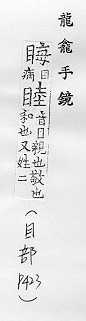 龍龕手鏡
目
病
睦
音目親也敬也
和也又姓二
（目部
P423）